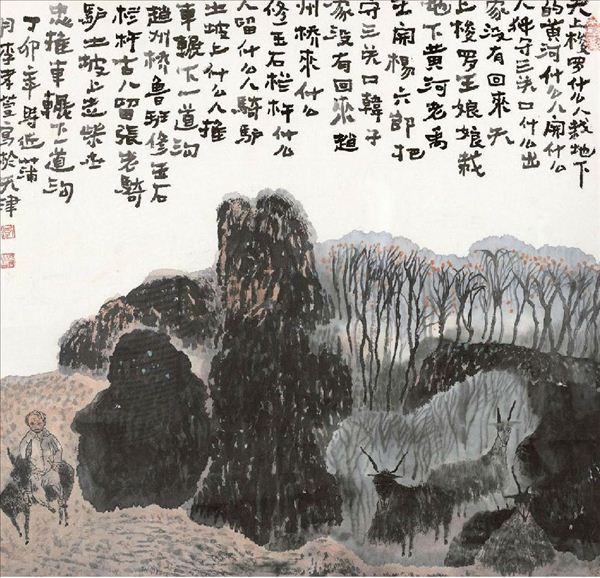 天上梭罗什么人栽地下
的黄河什么人开什么
人什守三关口什么出
家没有回来天
上梭罗王娘娘栽
地下黄河老禹
开杨六郎把
守三关口韩子
家没有回来赵
州桥来什么
修玉石栏杆什么
人留什么人骑驴
土坡上什么人推
车辗下一道沟
赵州桥鲁班修玉石
栏杆古人留张老骑
驴土坡上走柴王
忠推车辗下一道沟
丁卯年蒲
月李孝萱写於天津